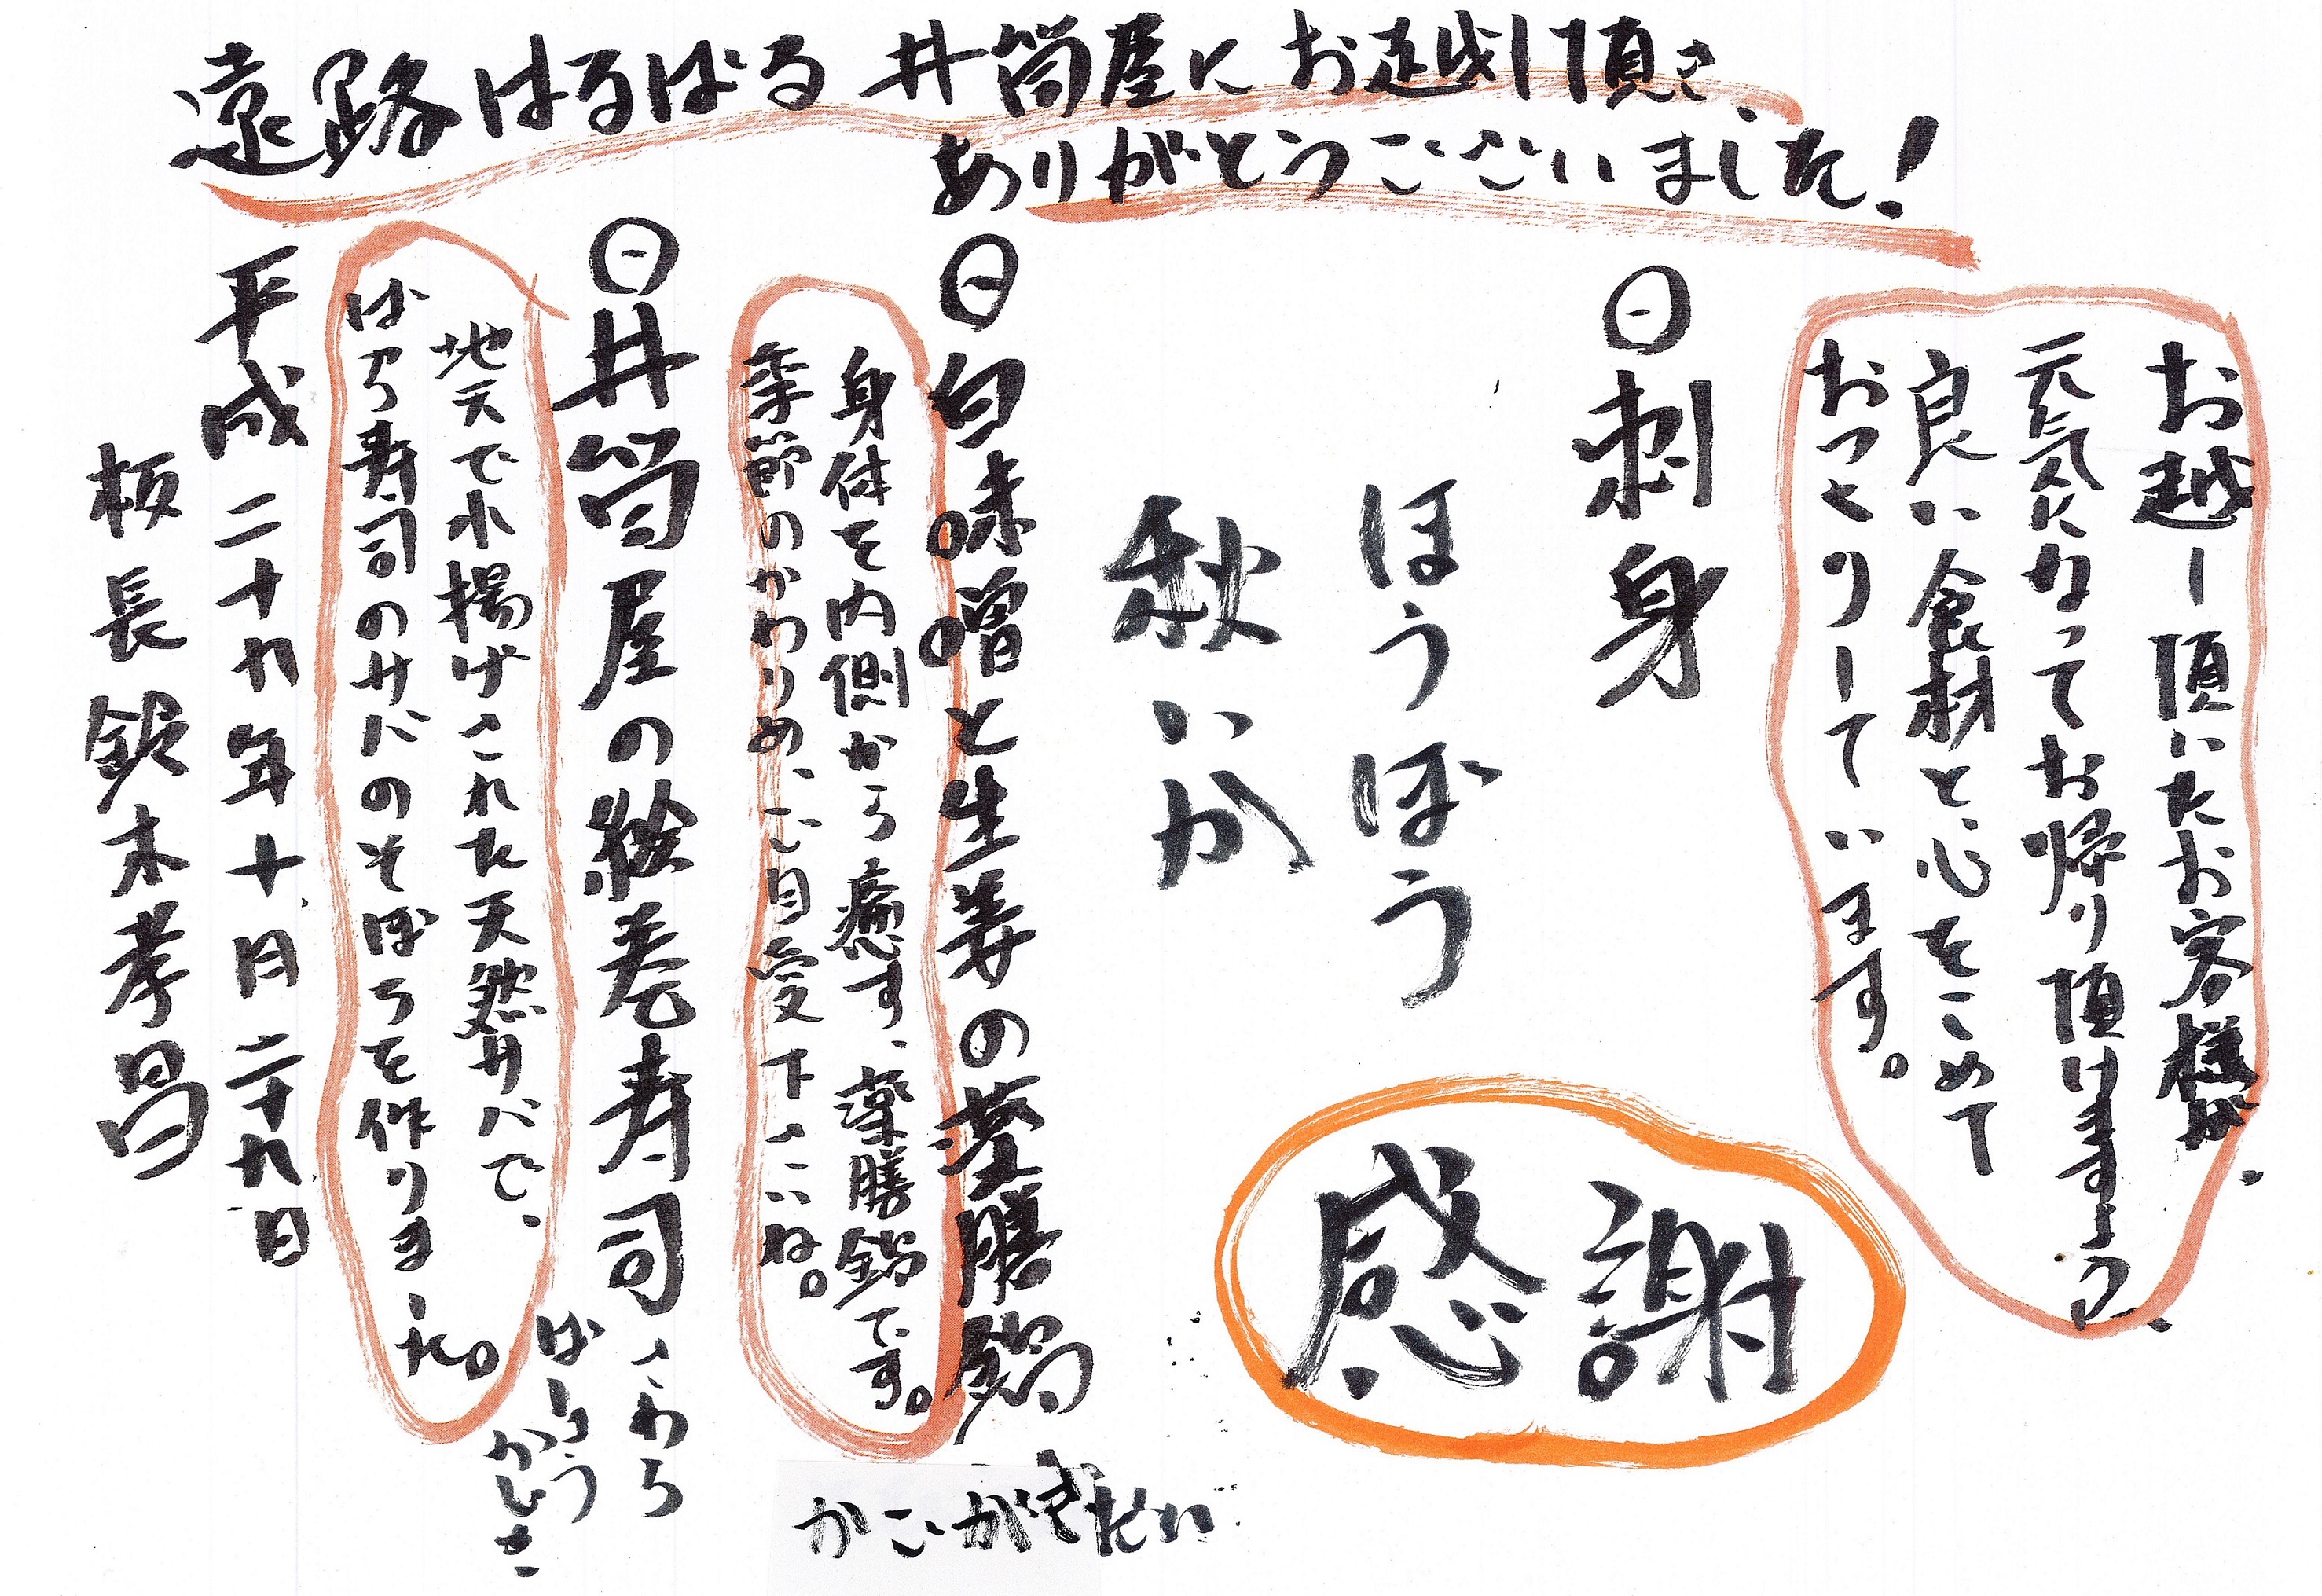 遠路はるばる井筒屋にお越し頂き、
ありがとうございました！
お越し頂いたお客様が、
元気になってお帰り頂けますよう、
良い食材と、心をこめて
おつくりしています。
㊀刺身
ほうぼう
秋いか
感謝
㊀白味噌と生姜の薬膳鍋
かこがきだい
身体を内側から癒す、薬膳鍋です。
季節のかわりめ、ご自愛下さいね。
㊀井筒屋の絵巻寿司
さわら
ばしょう
かじき
地元で水揚げされた天然サバで、
ばら寿司のサバのそぼろを作りました。
平成二十九年十月二十九日
板長 鈴木孝昌